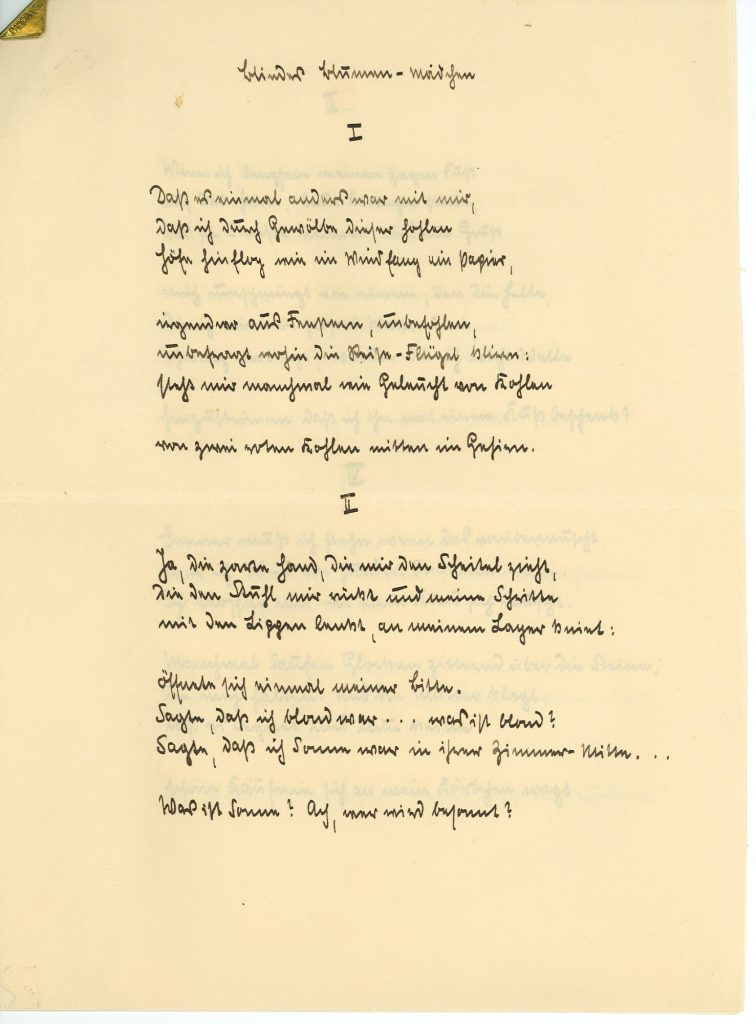 Blindes Blumen-Mädchen
I
Daß es einmal anders war mit mir,
daß ich durch Gewölbe dieser hohlen
Höfe hinflog wie im Windfang ein Papier,
irgendwo aus Fenstern, unbefohlen,
unbefragt wohin die Reise-Flügel klirrn:
steht mir manchmal wie Geleucht von Kohlen
von zwei roten Kohlen mitten im Gehirn.
II
Ja, die zarte Hand, die mir den Scheitel zieht,
die den Stuhl mir rückt und meine Schritte
mit den Lippen lenkt, an meinem Lager kniet:
öffnete sich einmal meiner Bitte.
Sagte, daß ich blond war . . . was ist blond?
Sagte, daß ich Sonne war in ihrer Zimmer-Mitte . . .
Was ist Sonne? Ach, wer wird besonnt?